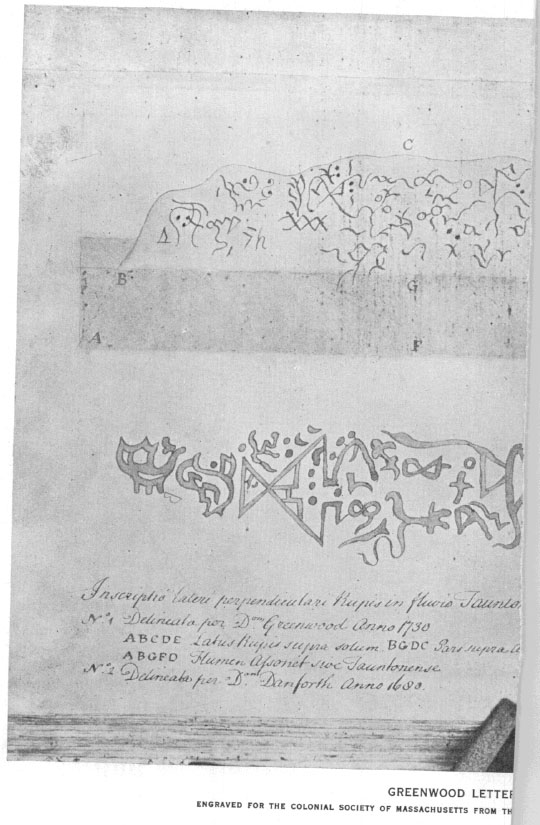 C
B
G
A
F
Inscriptio lateri perpendiculari Rupis in fluvio Taunto
N.º 1 Delineata per D.om Greenwood Anno 1730
ABCDE Latus Rupis supra solum BGDC Pars supra A
ABGFD Flumen Assonet sive Tauntonense
N.º 2 Delineata per D.nm Danforth Anno 1680.
GREENWOOD LETTER
ENGRAVED FOR THE COLONIAL SOCIETY OF MASSACHUSETTS FROM TH